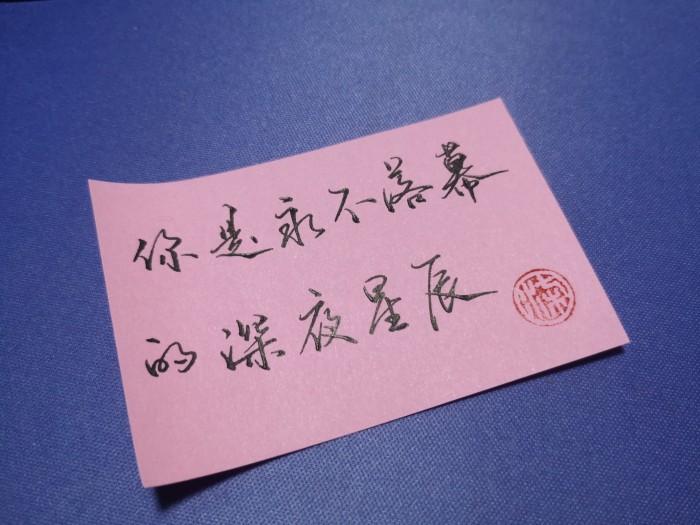 你是永不落幕
的深夜星辰